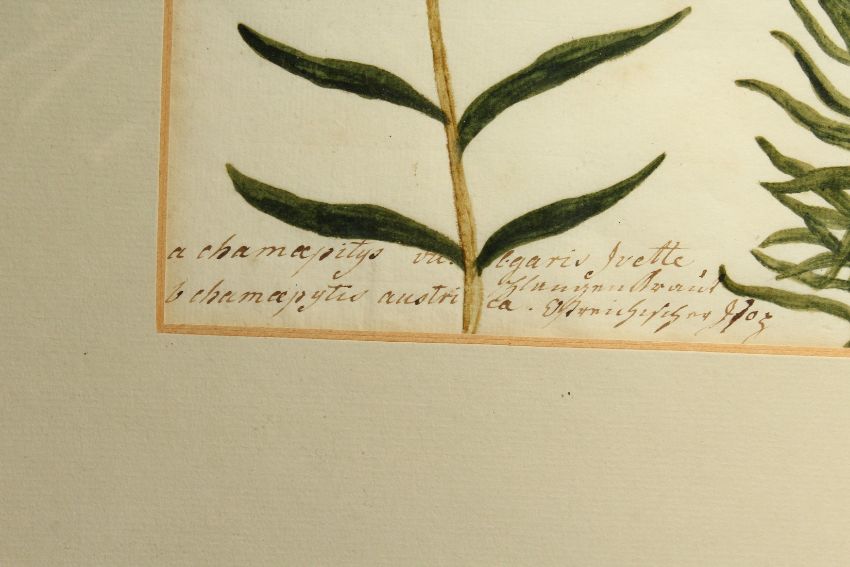 a chamæpitys vulgaris Ivette
SchlangenKraut
b chamæpytis austrica. Östreichischer